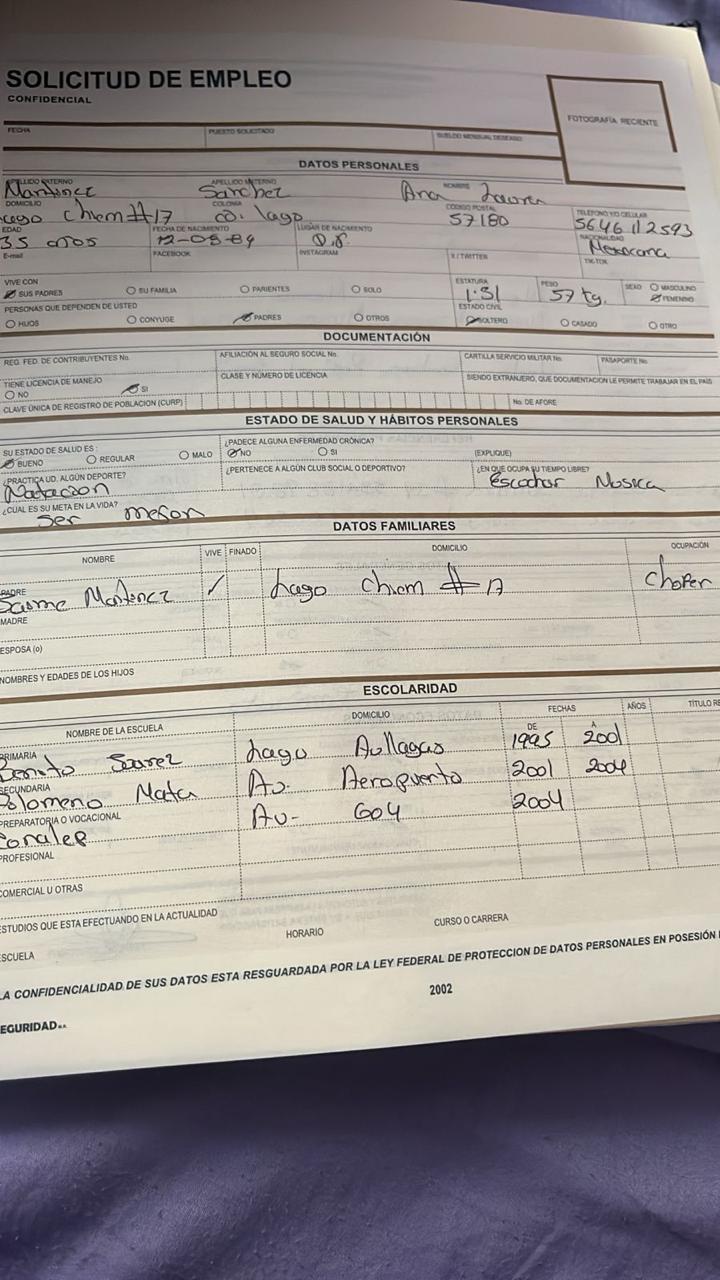 SOLICITUD DE EMPLEO
CONFIDENCIAL
FOTOGRAFÍA RECIENTE
FECHA PUESTO SOLICITADO SUELDO MENSUAL DESEADO
DATOS PERSONALES
APELLIDO PATERNO APELLIDO MATERNO NOMBRE
Martinez Sanchez Ana Laura
DOMICILIO COLONIA CODIGO POSTAL TELEFONO Y/O CELULAR
Lago Chiem #17 co. lago 57180 5646112593
EDAD FECHA DE NACIMIENTO LUGAR DE NACIMIENTO NACIONALIDAD
35 años 12-08-89 D.F. Mexicana
E-mail FACEBOOK INSTAGRAM X / TWITTER TIK-TOK
VIVE CON ESTATURA PESO SEXO MASCULINO
SUS PADRES SU FAMILIA PARIENTES SOLO 1.51 57 kg. FEMENINO
PERSONAS QUE DEPENDEN DE USTED ESTADO CIVIL
HIJOS CONYUGE PADRES OTROS SOLTERO CASADO OTRO
DOCUMENTACIÓN
REG. FED. DE CONTRIBUYENTES No. AFILIACIÓN AL SEGURO SOCIAL No. CARTILLA SERVICIO MILITAR No. PASAPORTE No.
TIENE LICENCIA DE MANEJO CLASE Y NÚMERO DE LICENCIA SIENDO EXTRANJERO, QUE DOCUMENTACIÓN LE PERMITE TRABAJAR EN EL PAÍS
NO SI
CLAVE ÚNICA DE REGISTRO DE POBLACIÓN (CURP) No. DE AFORE
ESTADO DE SALUD Y HÁBITOS PERSONALES
SU ESTADO DE SALUD ES : ¿PADECE ALGUNA ENFERMEDAD CRÓNICA? (EXPLIQUE)
BUENO REGULAR MALO NO SI
¿PRACTICA UD. ALGÚN DEPORTE? ¿PERTENECE A ALGÚN CLUB SOCIAL O DEPORTIVO? ¿EN QUE OCUPA SU TIEMPO LIBRE?
Natacion Escuchar Musica
¿CUÁL ES SU META EN LA VIDA?
Ser mejor
DATOS FAMILIARES
NOMBRE VIVE FINADO DOMICILIO OCUPACIÓN
PADRE
Jaime Martinez ✓ Lago Chiem #17 Chofer
MADRE
ESPOSA (o)
NOMBRES Y EDADES DE LOS HIJOS
ESCOLARIDAD
NOMBRE DE LA ESCUELA DOMICILIO FECHAS AÑOS TÍTULO RE
DE A
PRIMARIA
Benito Juarez Lago Aullagas 1995 2001
SECUNDARIA
Filomeno Mata Av. Aeropuerto 2001 2004
PREPARATORIA O VOCACIONAL
Conalep Av- 604 2004
PROFESIONAL
COMERCIAL U OTRAS
ESTUDIOS QUE ESTA EFECTUANDO EN LA ACTUALIDAD
ESCUELA HORARIO CURSO O CARRERA
LA CONFIDENCIALIDAD DE SUS DATOS ESTA RESGUARDADA POR LA LEY FEDERAL DE PROTECCION DE DATOS PERSONALES EN POSESIÓN
EGURIDAD 2002